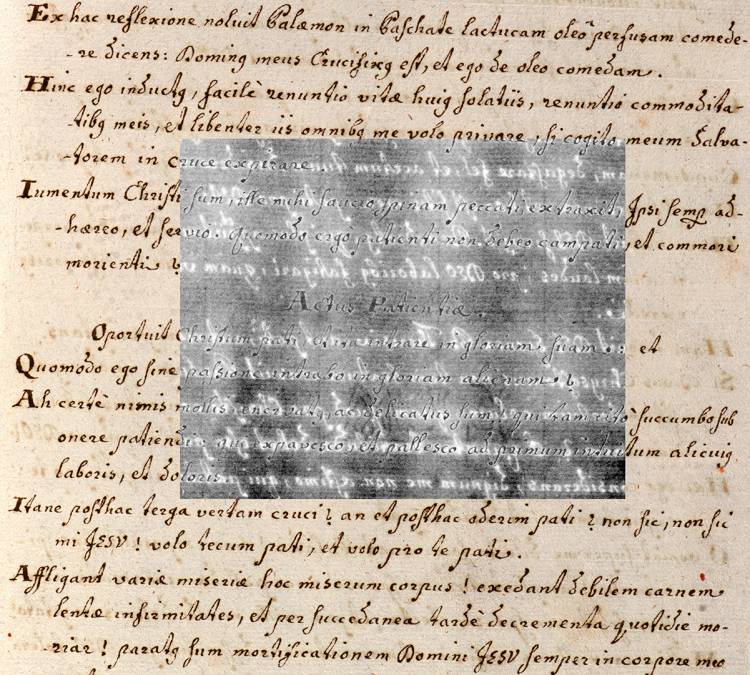 Ex hac reflexione noluit Palæmon in Paschate lactucam oleo perfusam comede-
-re dicens: Dominꝯ meus Crucifixꝯ est, et ego de oleo comedam.
Hinc ego inductꝯ, facilè renuntio vitæ huiꝯ solatiis, renuntio commodita-
-tibꝯ meis, et libenter iis omnibꝯ me volo privare, si cogito meum Salva-
-torem in cruce expirare.
Iumentum Christi sum, ille mihi saucio spinam peccati extraxit, Ipsi semp ad-
-hæreo, et servio. Quomodo ergo patienti non debeo compati, et commori
morienti?
Actus Patientiæ.
Oportuit Christum pati, et ita intrare in gloriam suam: et
Quomodo ego sine passione intrabo in gloriam alienam?
Ah certè nimis mollis, enervatꝯ, ac delicatus sum, qui tam citò succumbo sub
onere patiendi, qui expavesco, et pallesco ad primum intuitum alicuiꝯ
laboris, et doloris.
Itane posthac terga vertam cruci? an et posthac oderim pati? non sic, non sic
mi JESU! volo tecum pati, et volo pro te pati.
Affligant variæ miseriæ hoc miserum corpus! exedant debilem carnem
lentæ infirmitates, et per succedanea tardè decrementa quotidie mo-
-riar! paratꝯ sum mortificationem Domini JESU semper in corpore meo